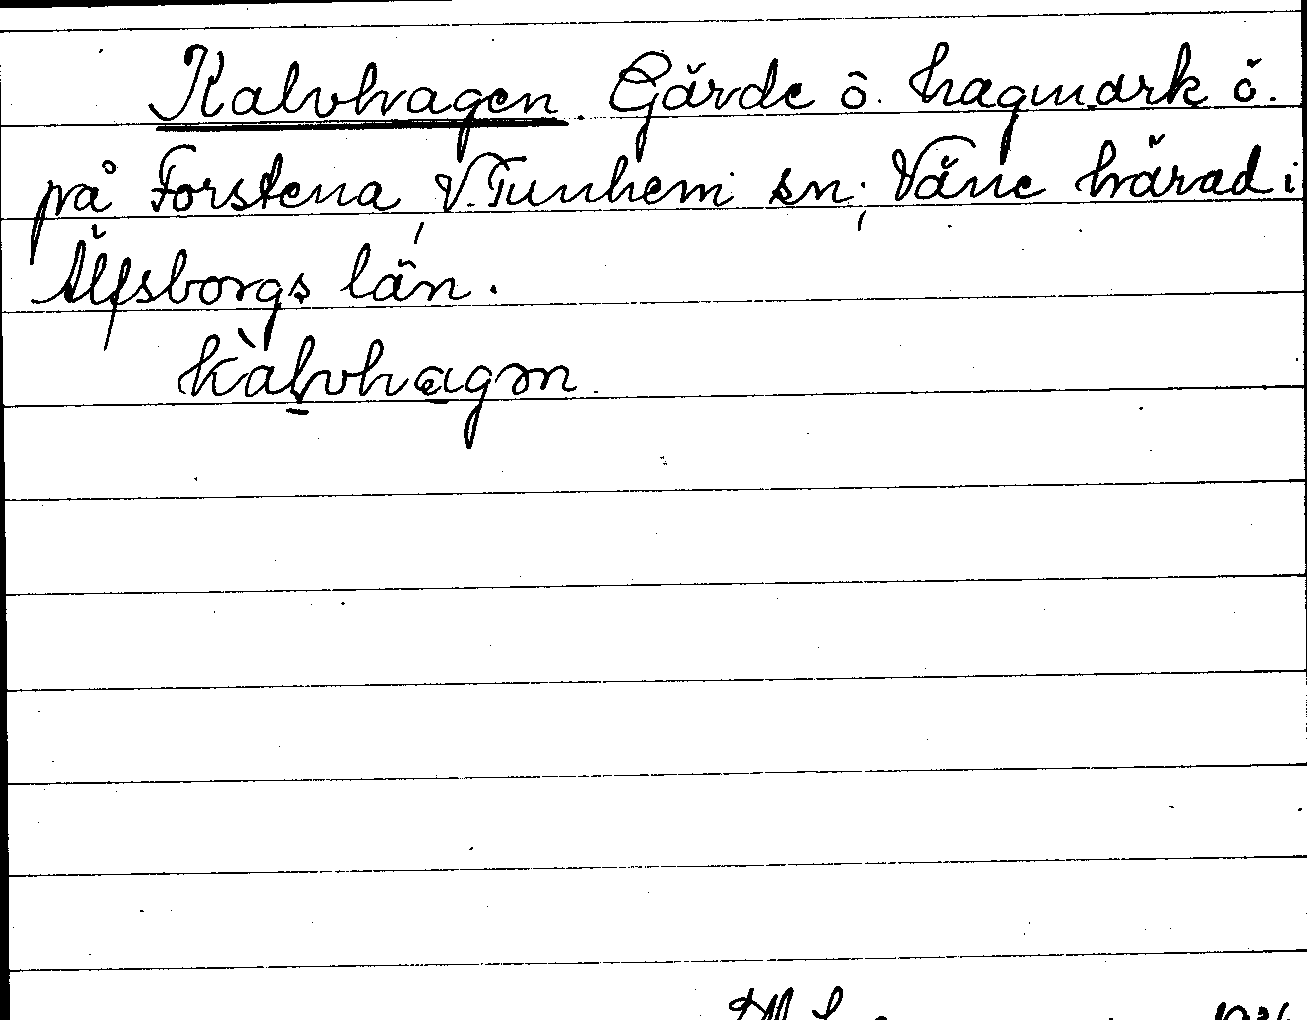 Kalvhagen. Gärde o. hagmark ö.
på Forstena, V. Tunhem sn; Väne härad i
Älfsborgs län.
kàlvhagən